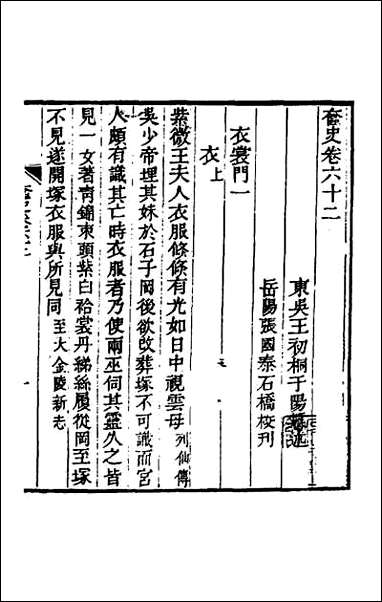 奩史卷六十二
東吳王初桐于陽纂述
岳陽張國泰石橋校刊
衣裳門一
衣上
紫微王夫人衣服條條有光如日中視雲母列仙傳
吳少帝埋其妹於石子岡後欲改葬塚不可識而宮
人頗有識其亡時衣服者乃使兩巫伺其靈久之皆
見一女著青錦束頭紫白袷裳丹綈絲履從岡至塚
不見遂開塚衣服與所見同至大金陵新志